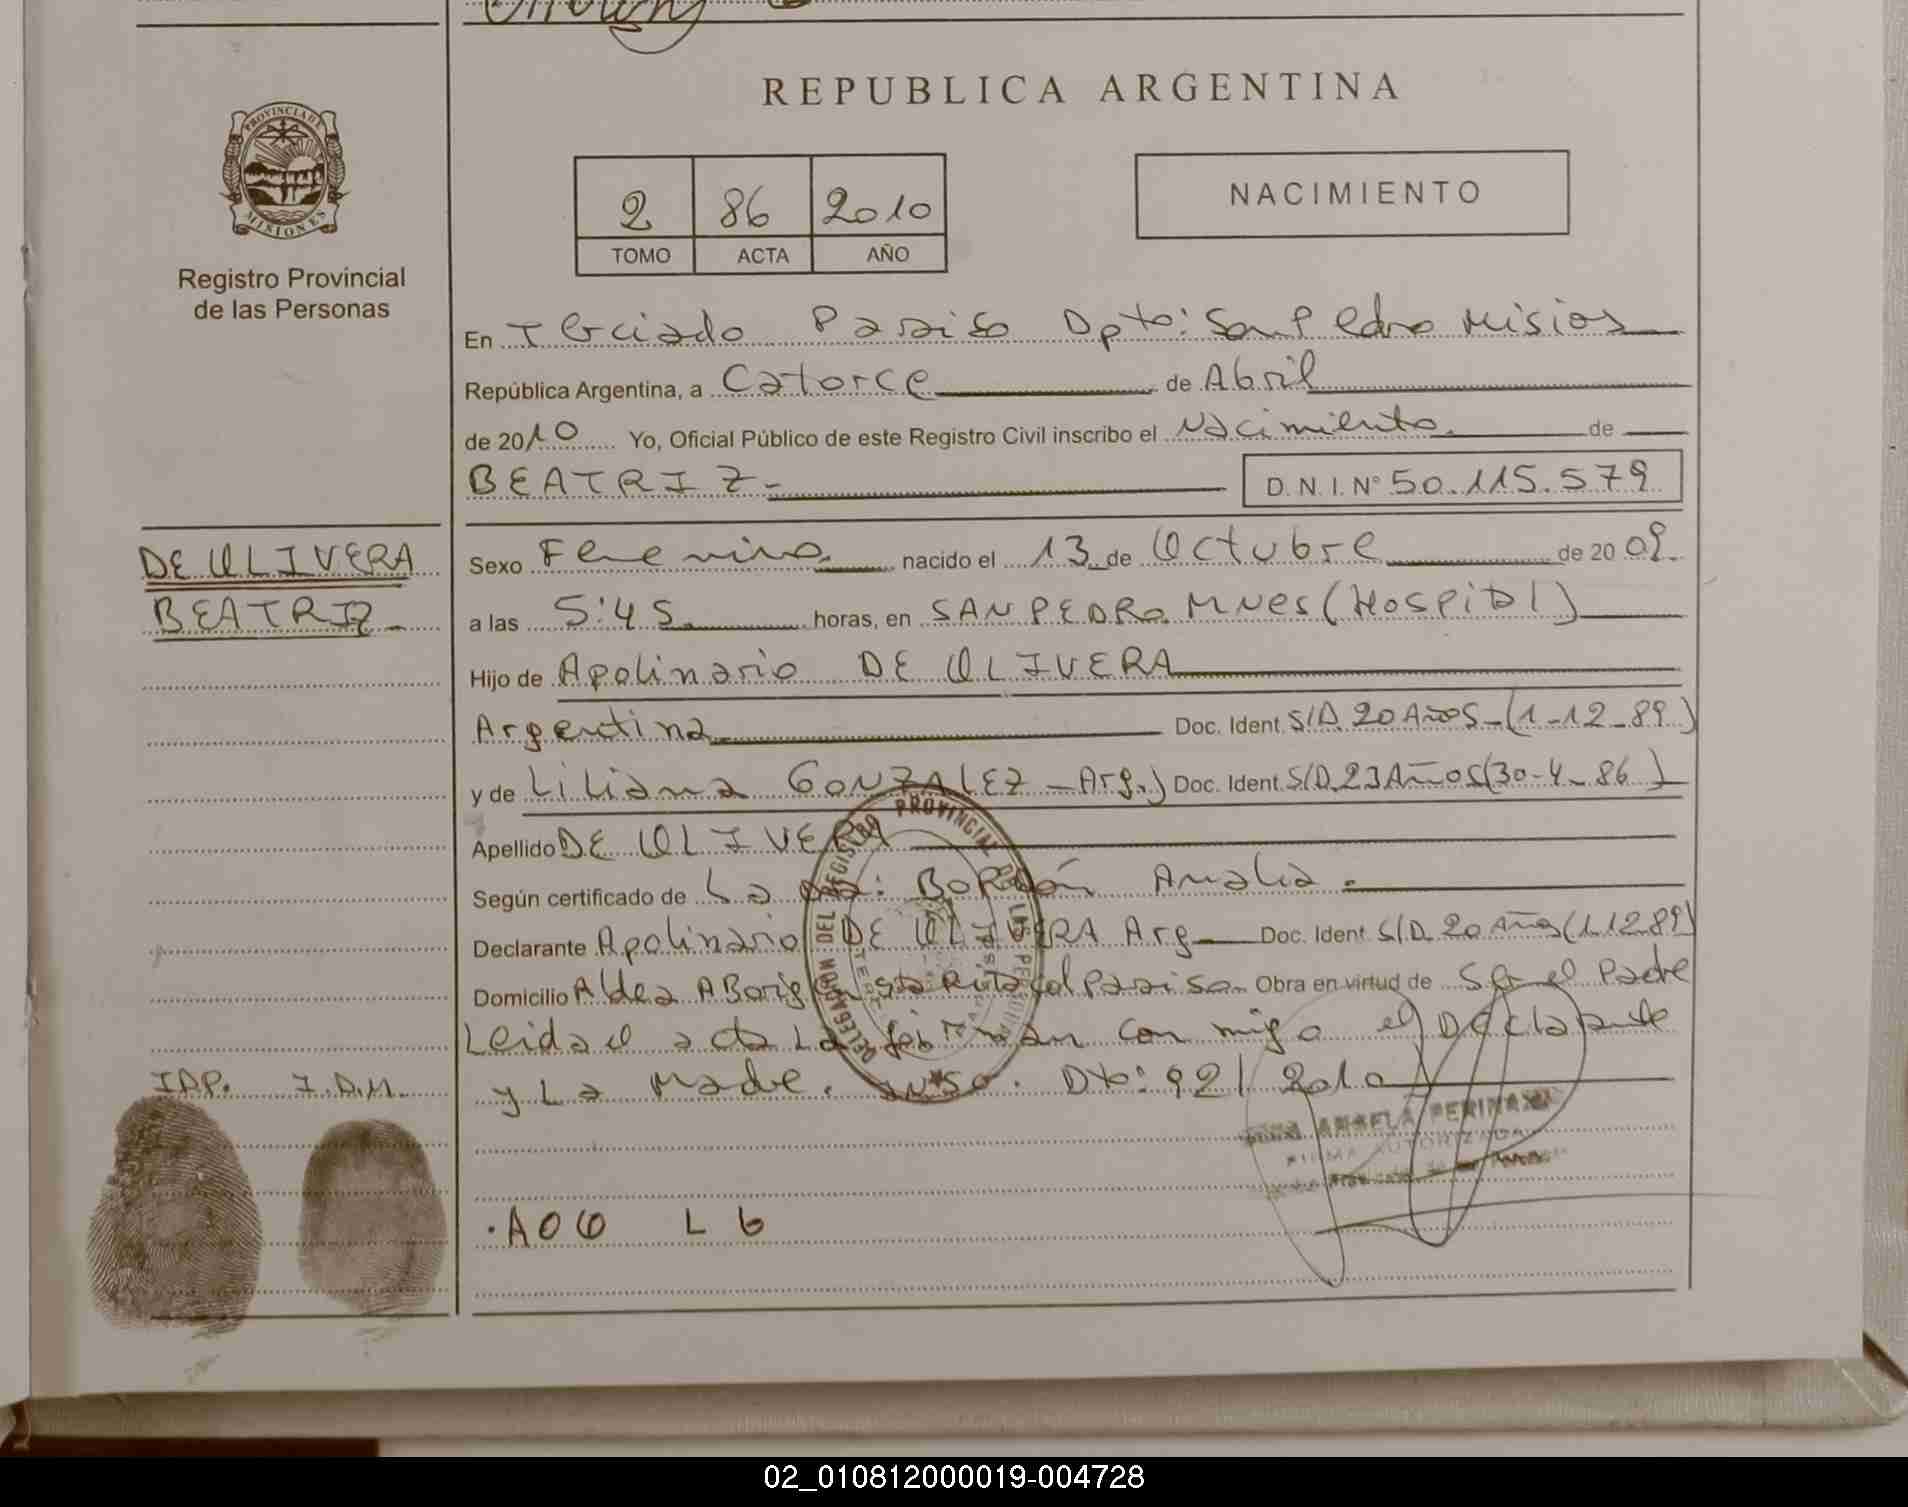 REPUBLICA ARGENTINA
PROVINCIA DE
MISIONES
Registro Provincial
de las Personas
2 86 2010
TOMO ACTA AÑO
NACIMIENTO
En Terciado Paraiso Dpto: San Pedro Misios
República Argentina, a Catorce de Abril
de 2010 Yo, Oficial Público de este Registro Civil inscribo el Nacimiento. de
BEATRIZ- D.N.I.Nº 50.115.579
DE OLIVERA
BEATRIZ-
Sexo Femenino nacido el 13 de Octubre de 20 09.
a las 5:45. horas, en SAN PEDRO. MNES (HOSPITAL)
Hijo de Apolinario DE OLIVERA
Argentina Doc. Ident. S/D. 20 AÑOS-(1-12-89)
y de Liliana GONZALEZ -Arg.) Doc. Ident. S/D.23 AÑOS(30-4-86)
Apellido DE OLIVERA
Según certificado de La BORDÓN Amalia.
Declarante Apolinario DE OLIVERA Arg Doc. Ident. S/D. 20 Años(1.12.89)
Domicilio Aldea ABorigen Sta Rita Col Paraiso. Obra en virtud de Ser el Padre
Leida el acta La firman con migo el Declarante
y La Madre. Dto: 92/2010
I.D.P. I.D.M.
DELEGACION DEL REGISTRO PROVINCIAL DE LAS PERSONAS
ANGELA PERINA
FIRMA AUTORIZADA
.A06 L6
02_010812000019-004728